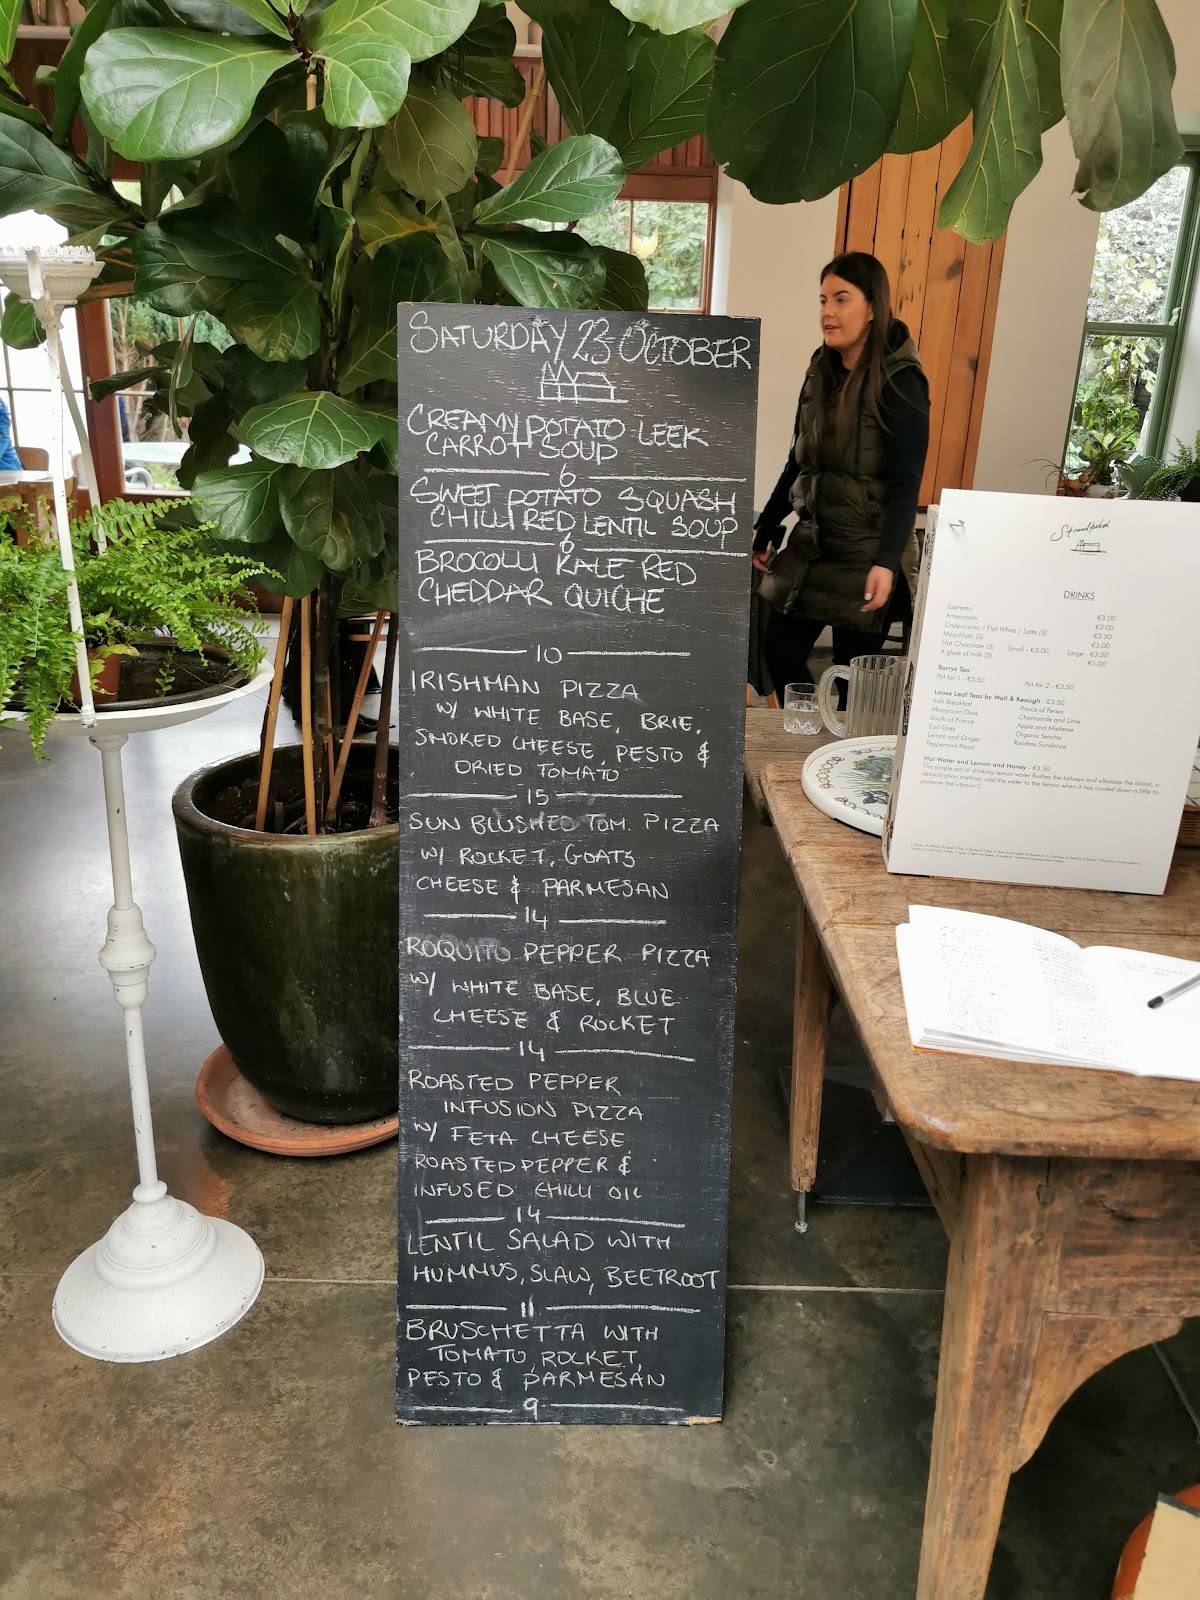 SATURDAY 23 OCTOBER
CREAMY POTATO LEEK
CARROT SOUP
6
SWEET POTATO SQUASH
CHILLI RED LENTIL SOUP
6
BROCOLLI KALE RED
CHEDDAR QUICHE
10
IRISHMAN PIZZA
W/ WHITE BASE, BRIE,
SMOKED CHEESE, PESTO &
DRIED TOMATO
15
SUN BLUSHED TOM. PIZZA
W/ ROCKET, GOATS
CHEESE & PARMESAN
14
ROQUITO PEPPER PIZZA
W/ WHITE BASE, BLUE
CHEESE & ROCKET
14
ROASTED PEPPER
INFUSION PIZZA
W/ FETA CHEESE
ROASTED PEPPER &
INFUSED CHILLI OIL
14
LENTIL SALAD WITH
HUMMUS, SLAW, BEETROOT
11
BRUSCHETTA WITH
TOMATO, ROCKET,
PESTO & PARMESAN
9
DRINKS
Espresso €3.00
Americano €3.00
Cappuccino / Flat White / Latte (3) €3.50
Macchiato (3) €3.00
Hot Chocolate (3) Small - €3.00 Large - €3.50
A glass of milk (3) €1.00
Barrys Tea
Pot for 1 - €2.50 Pot for 2 - €3.50
Loose Leaf Teas by Wall & Keough - £3.50
Irish Breakfast Prince of Persia
Moroccan Dusk Chamomile and Lime
South of France Apple and Mistletoe
Earl Grey Organic Sencha
Lemon and Ginger Rooibos Sundance
Peppermint Blend
Hot Water and Lemon and Honey - €3.50
The simple act of drinking lemon water flushes the kidneys and alkalizes the blood, a
detoxification method, add the water to the lemon when it has cooled down a little to
preserve the vitamin C.